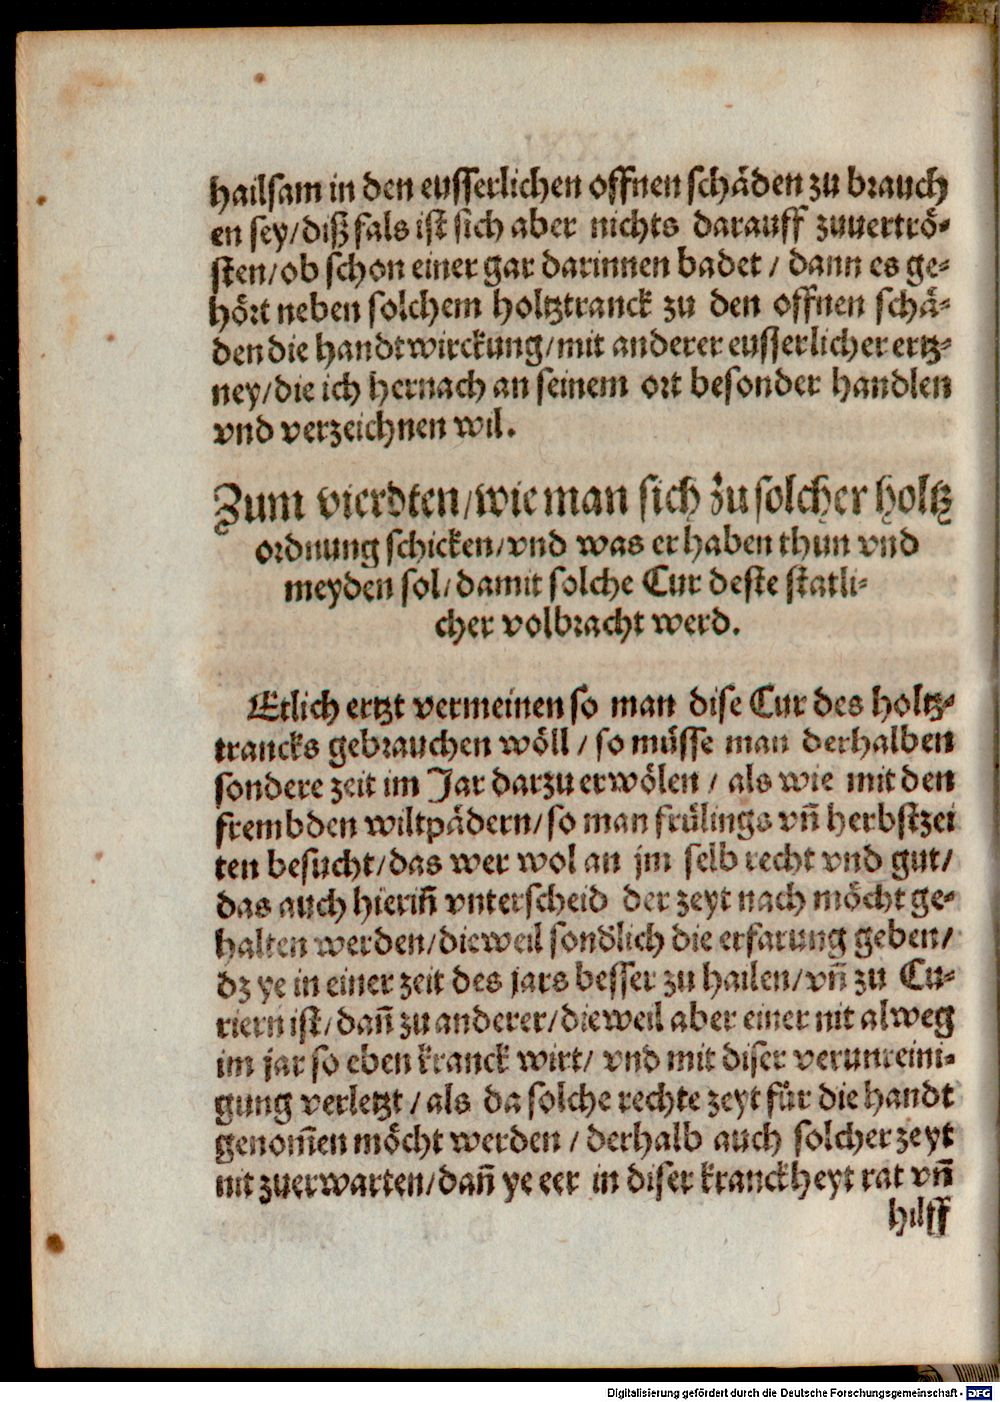 hailsam in den eusserlichen offnen schäden zu brauch
en sey/diß fals ist sich aber nichts darauff zuuertrö⸗
sten/ob schon einer gar darinnen badet / dann es ge⸗
hört neben solchem holtztranck zu den offnen schä⸗
den die handtwirckung/mit anderer eusserlicher ertz⸗
ney/die ich hernach an seinem ort besonder handlen
vnd verzeichnen wil.
Zum vierdten/wie man sich zu solcher holtz
ordnung schicken/vnd was er haben thun vnd
meyden sol/damit solche Cur deste statli⸗
cher volbracht werd.
Etlich ertzt vermeinen so man dise Cur des holtz⸗
trancks gebrauchen wöll / so müsse man derhalben
sondere zeit im Jar darzu erwölen / als wie mit den
frembden wiltpädern/so man frülings vñ herbstzei
ten besucht/das wer wol an jm selb recht vnd gut/
das auch hieriñ vnterscheid der zeyt nach möcht ge⸗
halten werden/dieweil sondlich die erfarung geben/
dz ye in einer zeit des jars besser zu hailen/vñ zu Cu⸗
riern ist/dañ zu anderer/dieweil aber einer nit alweg
im jar so eben kranck wirt/ vnd mit diser verunreini⸗
gung verletzt / als da solche rechte zeyt für die handt
genom̃en möcht werden / derhalb auch solcher zeyt
nit zuerwarten/dañ ye eer in diser kranckheyt rat vñ
hilff
Digitalisierung gefördert durch die Deutsche Forschungsgemeinschaft - DFG